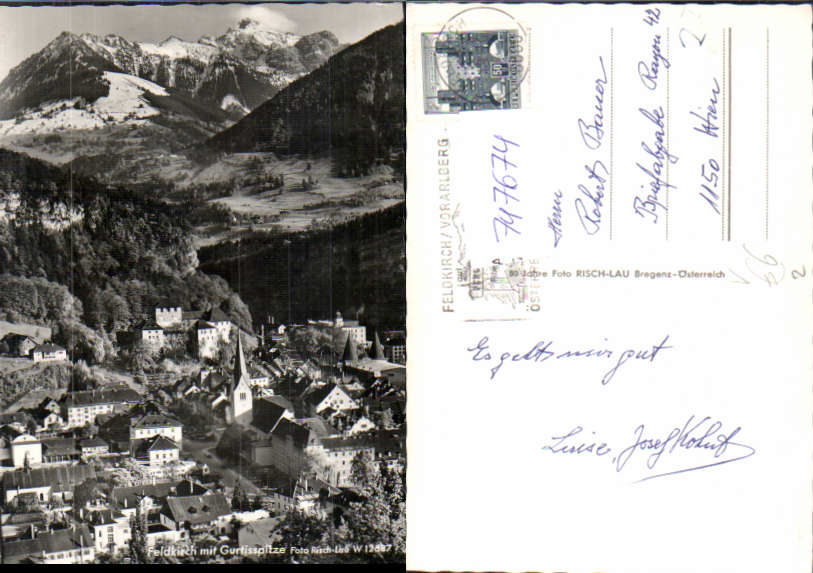 Feldkirch mit Gurtisspitze Foto Risch-Lau W 12687
50
FELDKIRCH/VORARLBERG
747674
Herrn
Robert Bauer
Briefabgabe Rayon 42
1150 Wien
80 Jahre Foto RISCH-LAU Bregenz-Österreich
2
Es geht's mir gut
Luise, Josef Kohut